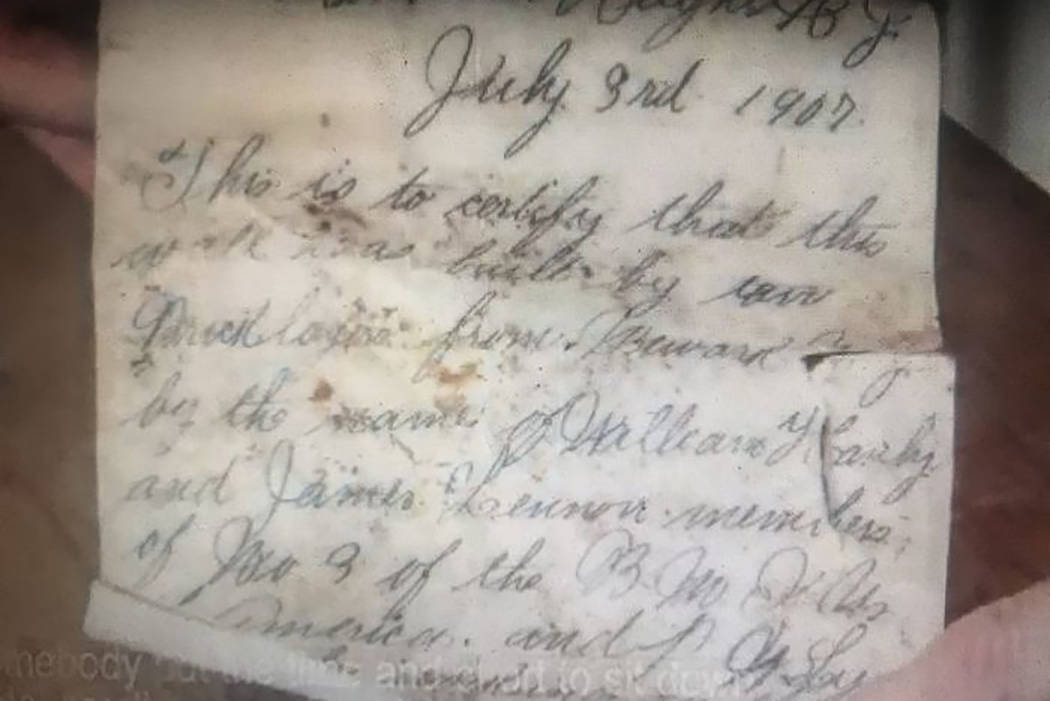 N J.
July 3rd 1907.
This is to certify that this
wall was built by two
Bricklayers from Newark N J
by the name of William Hanly
and James Lennon members
of No 3 of the B. M. I. U.
America. and
mebody put the time and effort to sit down